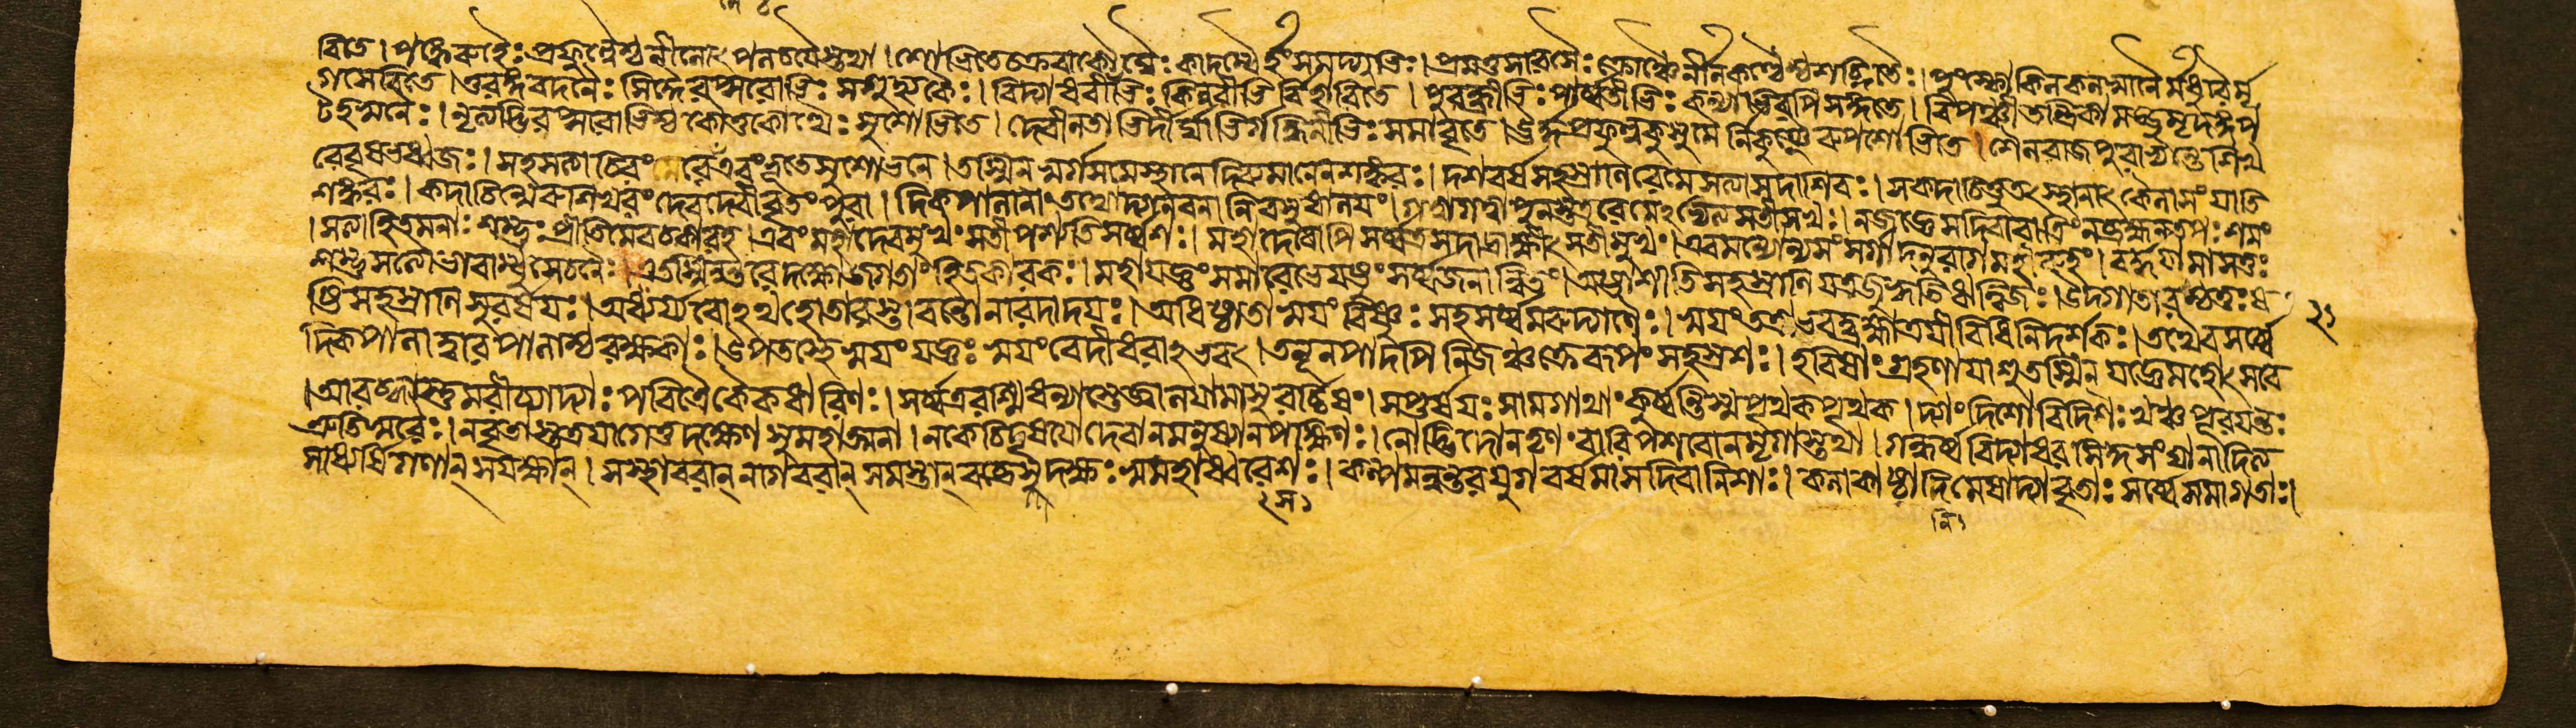 বিতে। পঙ্কেরুহৈঃ প্রফুল্লৈশ্চ নীলোৎপলচয়ৈস্তথা। শোভিতে চক্রবাকৌঘৈঃ কাদম্বৈর্হংসমদ্গুভিঃ। প্রমত্তসারসৈঃ ক্রৌঞ্চৈর্নীলকণ্ঠৈশ্চ শব্দিতৈঃ। পুংস্কোকিলকলস্বানৈর্মধুরৈর্মৃ
গসেবিতে। তুরঙ্গবদনৈঃ সিদ্ধৈরপ্সরোভিঃ সগুহ্যকৈঃ। বিদ্যাধরীভিঃ কিন্নরীভির্বিহারিতে। পুরন্ধ্রীভিঃ পার্ব্বতীভিঃ কন্যাভিরপি সঙ্গতে। বিপঞ্চীতন্ত্রিকামন্দ্রমৃদঙ্গপ
টহস্বনৈঃ। নৃত্যদ্ভিরপ্সরোভিশ্চ কৌতুকোত্থৈঃ সুশোভিতে। দেবীলতাভির্দীর্ঘাভির্গন্ধিনীভিঃ সমাবৃতে। ঊর্দ্ধপ্রফুল্লকুসুমৈর্নিকুঞ্জৈরুপশোভিতে। শৈলরাজপুরাভ্যন্তে শিখ
রে বৃষভধ্বজঃ। সহ সত্যা চিরং রেমে এবংভূতে সুশোভনে। তস্মিন স্বর্গসমে স্থানে দিব্যমানেন শঙ্করঃ। দশবর্ষসহস্রাণি রেমে সত্যা সদাশিবঃ। স কদাচিত্ততঃ স্থানাৎ কৈলাসং যাতি
শঙ্করঃ। কদাচিন্মেরুশিখরং দেবদেবীবৃতং পুরা। দিকপালানাং তথোদ্যানবনানি বসুধালয়ং। গত্বা গত্বা পুনস্তত্র রেমে ত্যে সতীসখঃ। ন জজ্ঞে স দিবারাত্রিং ন ব্রহ্ম ন তপঃ শমং
। সত্যাহিতমনাঃ শম্ভুঃ প্রীতিমেব চকার হ। এবং মহাদেবমুখং সতী পশ্যতি সর্ব্বশঃ। মহাদেবোপি সর্ব্বত্র সদাদ্রাক্ষীৎ সতীমুখং। এবমন্যোন্যসংসর্গাদনুরাগমহীরুহং। বর্দ্ধয়ামাসতুঃ
শম্ভুসত্যৌ ভাবাম্বুসেচনৈঃ। এতস্মিন্নন্তরে দক্ষো জগতাং হিতকারকঃ। মহাযজ্ঞং সমারেভে যষ্টুং সর্ব্বজনান্বিতং। অষ্টাশীতিসহস্রাণি যত্র জুহ্বতি ঋত্বিজঃ। উদগাতারশ্চতুঃষ
ষ্ঠিসহস্রাণি সুরর্ষয়ঃ। অধ্বর্য্যবোঽথ হোতারস্তাবন্তো নারদাদয়ঃ। অধিষ্ঠাতা স্বয়ং বিষ্ণুঃ সহ সর্ব্বমরুদ্গণৈঃ। স্বয়ং তত্রাভবদ্ব্রহ্মা ত্রয়ীবিধিনিদর্শকঃ। তথৈব সর্ব্বে ২১
দিকপালা দ্বারপালাশ্চ রক্ষকাঃ। উপতস্থে স্বয়ং যজ্ঞঃ স্বয়ং বেদী ধরাঽভবৎ। তনূনপাদপি নিজঞ্চক্রে রূপং সহস্রশঃ। হবিষাং গ্রহণায়াশু তস্মিন যজ্ঞে মহোৎসবে
। আবদ্ধাস্তু মরীচ্যাদ্যাঃ পবিত্রৈকৈকধারিণঃ। সর্ব্বত্র রশ্মি জ্বালয়ামাসুরর্চ্চিষং। সপ্তর্ষয়ঃ সামগাথাং কুর্ব্বন্তি স্ম পৃথক পৃথক। দ্যাং দিশো বিদিশঃ খঞ্চ পূরয়ন্তঃ
শ্রুতিস্বরৈঃ। ন বৃতাস্তত্র যাগে তু দক্ষেণ সুমহাত্মনা। ন কেচিদৃষয়ো দেবা ন মনুষ্যা ন পক্ষিণঃ। নোদ্ভিদো ন তৃণং বাপি পশবো ন মৃগাস্তথা। গন্ধর্ব্ববিদ্যাধরসিদ্ধসংঘানাদিত্য
সাধ্যর্ষিগণান্ সযক্ষান্। সস্থাবরান্ নাগবরান্ সমস্তান্ বব্রে স দক্ষঃ স্বমহাধ্বরেশঃ। কল্পমন্বন্তরযুগবর্ষমাসদিবানিশাঃ। কলাকাষ্ঠানিমেষাদ্যা বৃতাঃ সর্ব্বে সমাগতাঃ।